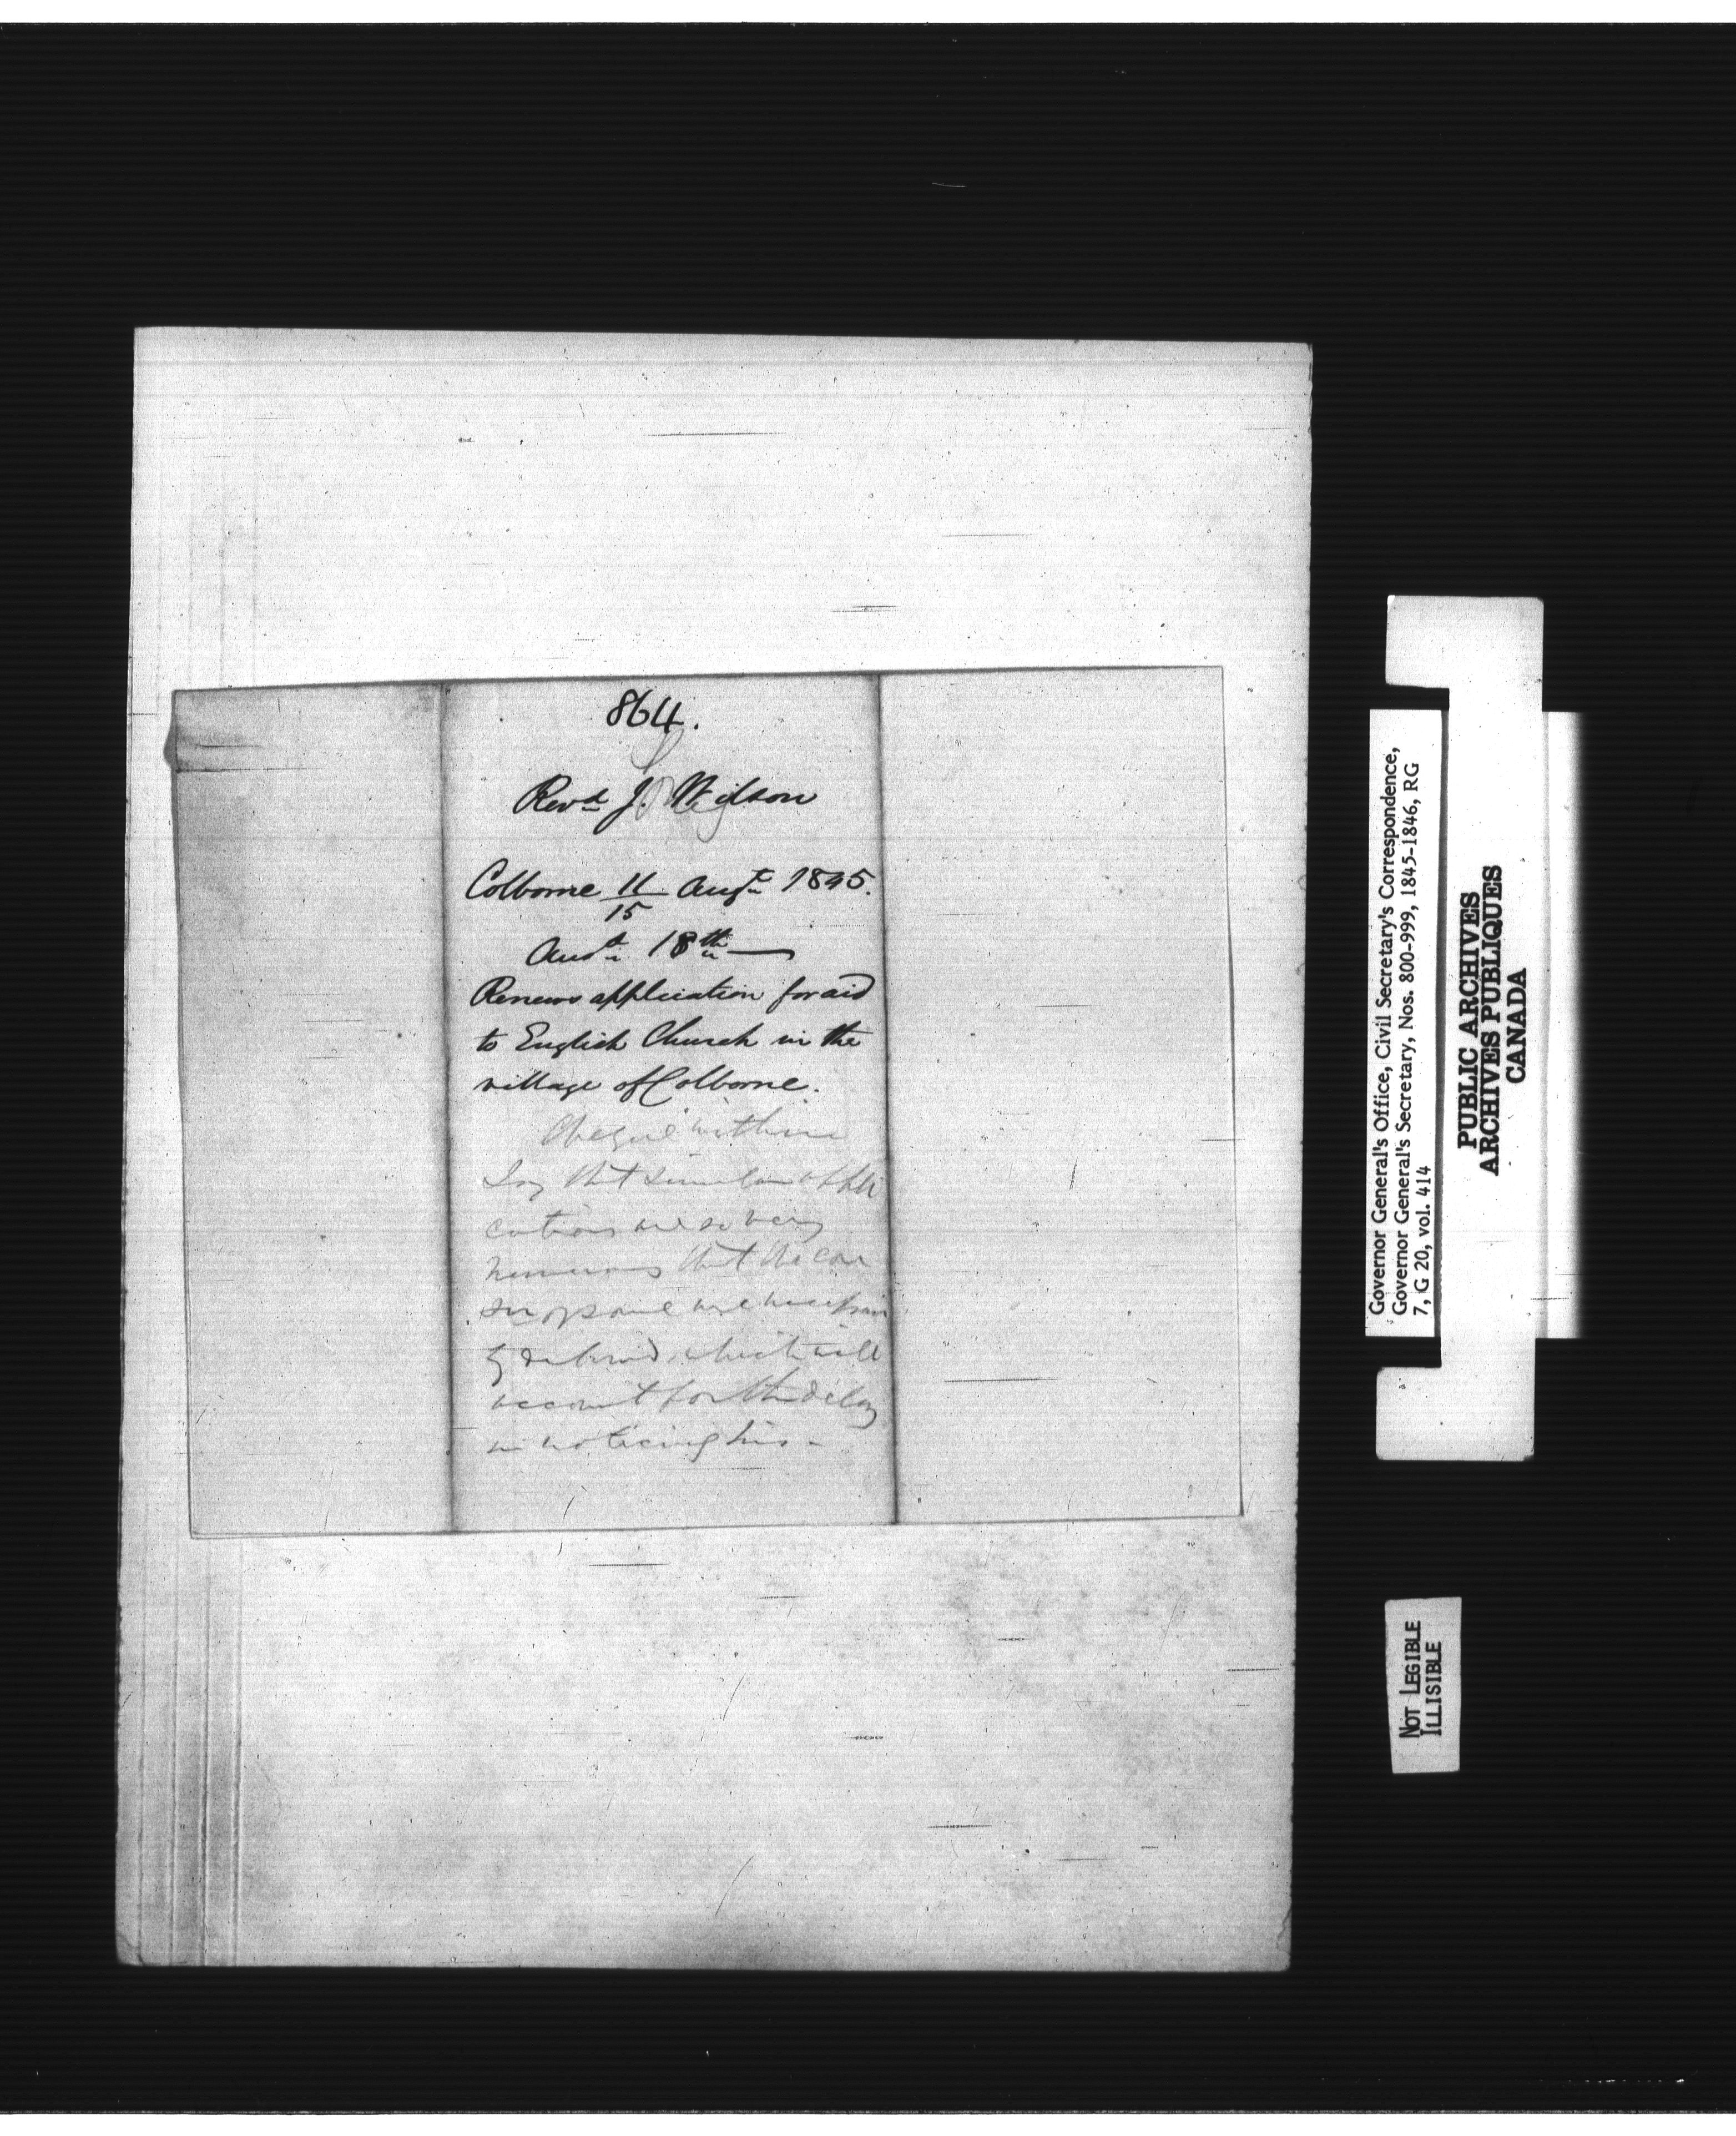 864.
Revd J. Wilson
Colborne 11/15 Augt 1845.
Ansd 18th
Renews application for aid
to English Church in the
village of Colborne.
Cheque within
Say that similar appli
cations are so very
numerous that the
are
which will
account for the delay
in noticing his -
Governor General's Office, Civil Secretary's Correspondence,
Governor General's Secretary, Nos. 800-999, 1845-1846, RG
7, G 20, vol. 414
PUBLIC ARCHIVES
ARCHIVES PUBLIQUES
CANADA
NOT LEGIBLE
ILLISIBLE